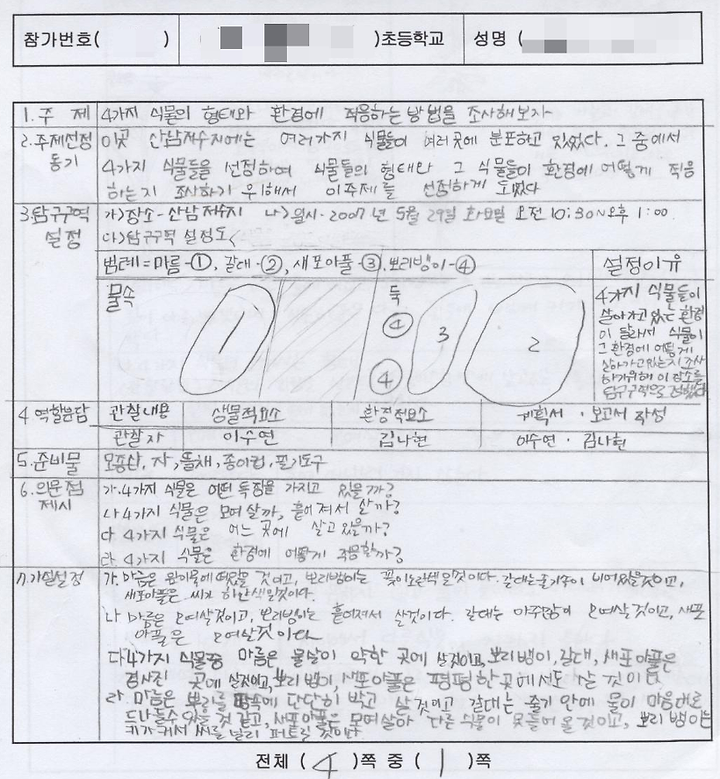 참가번호( ) )초등학교 성명 (
1. 주 제 4가지 식물의 형태와 환경에 적응하는 방법을 조사해보자
2. 주제선정 동기 이곳 산남저수지에는 여러가지 식물들이 여러곳에 분포하고 있었다. 그 중에서
4가지 식물들을 선정하여 식물들의 형태와 그 식물들이 환경에 어떻게 적응
하는지 조사하기 위해서 이주제를 선정하게 되었다
3.탐구구역 설정 가)장소-산남저수지 나)일시-2007년 5월 29일 화요일 오전 10:30~오후 1:00
다)탐구구역 설정도
범례=마름-①, 갈대-②, 새포아풀-③, 뽀리뱅이-④ 설정이유
물속 1 둑 ④ ④ 3 2
4가지 식물들이
살아가고 있는 환경
이 달라서 식물이
그 환경에 어떻게
살아가고있는지 조사
하기위해 이 장소를
탐구구역으로 정했다
4. 역할분담 관찰내용 생물적요소 환경적요소 계획서·보고서 작성
관찰자 이수연 김나현 이수연·김나현
5. 준비물 모종삽, 자, 뜰채, 종이컵, 필기도구
6. 의문점 제시 가.4가지 식물은 어떤 특징을 가지고 있을까?
나 4가지 식물은 모여살까, 흩어져서 살까?
다 4가지 식물은 어느 곳에 살고있을까?
라 4가지 식물은 환경에 어떻게 적응할까?
7.가설설정 가.마름은 물위에 떠있을 것이고, 뽀리뱅이는 꽃이노란색일것이다. 갈대는줄기속이 비어있을것이고,
새포아풀은 씨가 하얀색일것이다.
나 마름은 모여살것이고, 뽀리뱅이는 흩어져서 살것이다. 갈대는 아주많이 모여살것이고, 새포
아풀은 모여살것이다
다 4가지 식물중 마름은 물살이 약한 곳에 살것이고, 뽀리뱅이, 갈대, 새포아풀은
경사진 곳에 살것이고, 뽀리뱅이, 새포아풀은 평평한곳에서도 살 것이다
라 마름은 뿌리를 땅속에 단단히 박고 살 것이고 갈대는 줄기 안에 물이 마음대로
드나들수 있을 것 같고, 새포아풀은 모여살아 다른 식물이 못들어 올것이고, 뽀리뱅이는
키가커서 씨를 널리 퍼트릴 것이다
전체 ( 4 )쪽 중 ( 1 )쪽